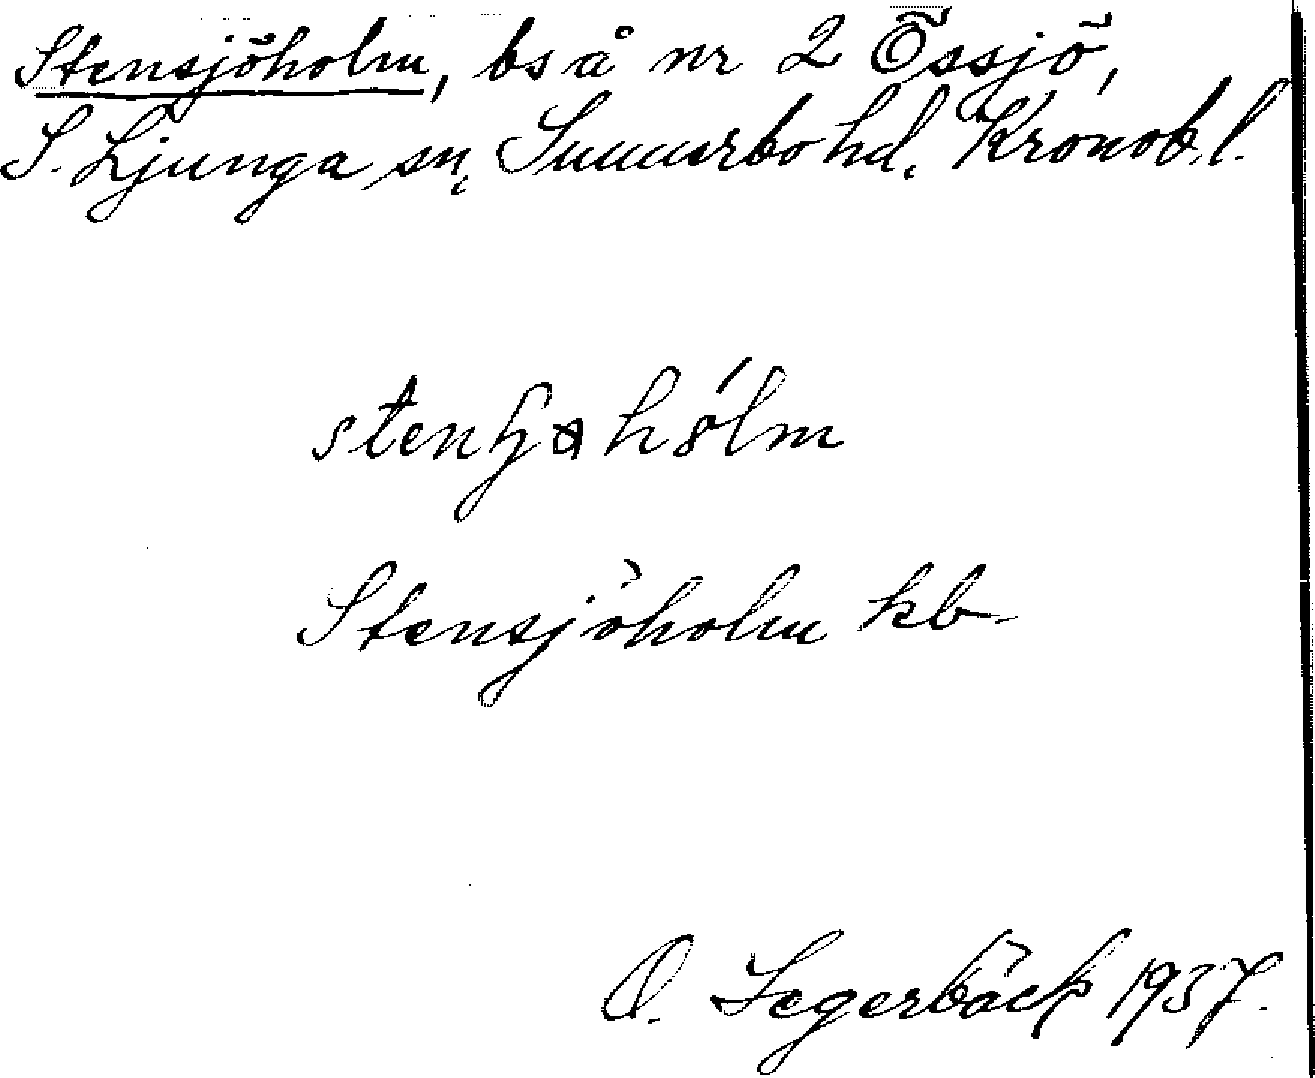 Stensjöholm, bs å nr 2 Össjö,
S. Ljunga sn, Sunnerbo hd, Kronob. l.
hólm
Stensjöholm kb.
O. Segerbäck 1937.